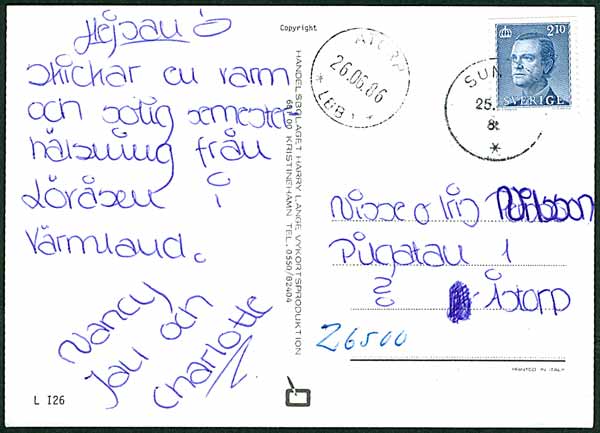 Hejsan
skickar en varm
och solig semester
hälsning från
Löråsen i
Värmland.
Nancy
Jan och
Charlotte
L 126
Copyright
HANDELSBOLAGET HARRY LANGE VYKORTSPRODUKTION
681 00 KRISTINEHAMN TEL. 0550/82404
26.06.86
SUN
25.
SVERIGE
210
Nisse o Iris Nilsson
Pilgatan 1
Åstorp
26500
PRINTED IN ITALY